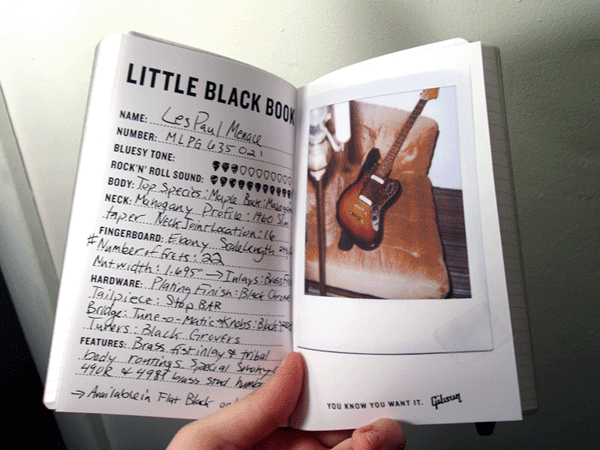 LITTLE BLACK BOOK
NAME: Les Paul Menace
NUMBER: MLPG 635 021
BLUESY TONE:
ROCK'N'ROLL SOUND:
BODY: Top Species: Maple Back:
NECK: Mahogany Profile: 1960 Slim
taper Neck Joint Location: 16
FINGERBOARD: Ebony Scale Length
# Number of frets: 22
Nut width: 1.695" → Inlays: Brass
HARDWARE: Plating Finish: Black Chrome
Tailpiece: Stop BAR
Bridge: Tune-o-Matic * Knobs: Black
Tuners: Black Grovers
FEATURES: Brass fist inlay & tribal
body routings. Special
490R & 498T brass stud
→ Available in Flat Black
YOU KNOW YOU WANT IT. Gibson